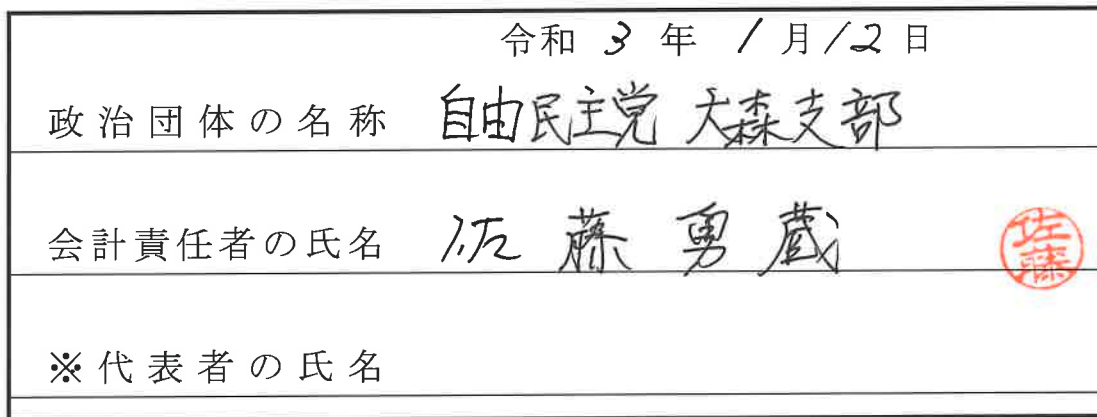 令和 3 年 1 月 12 日
政治団体の名称 自由民主党 大森支部
会計責任者の氏名 佐藤勇蔵 佐藤
※代表者の氏名